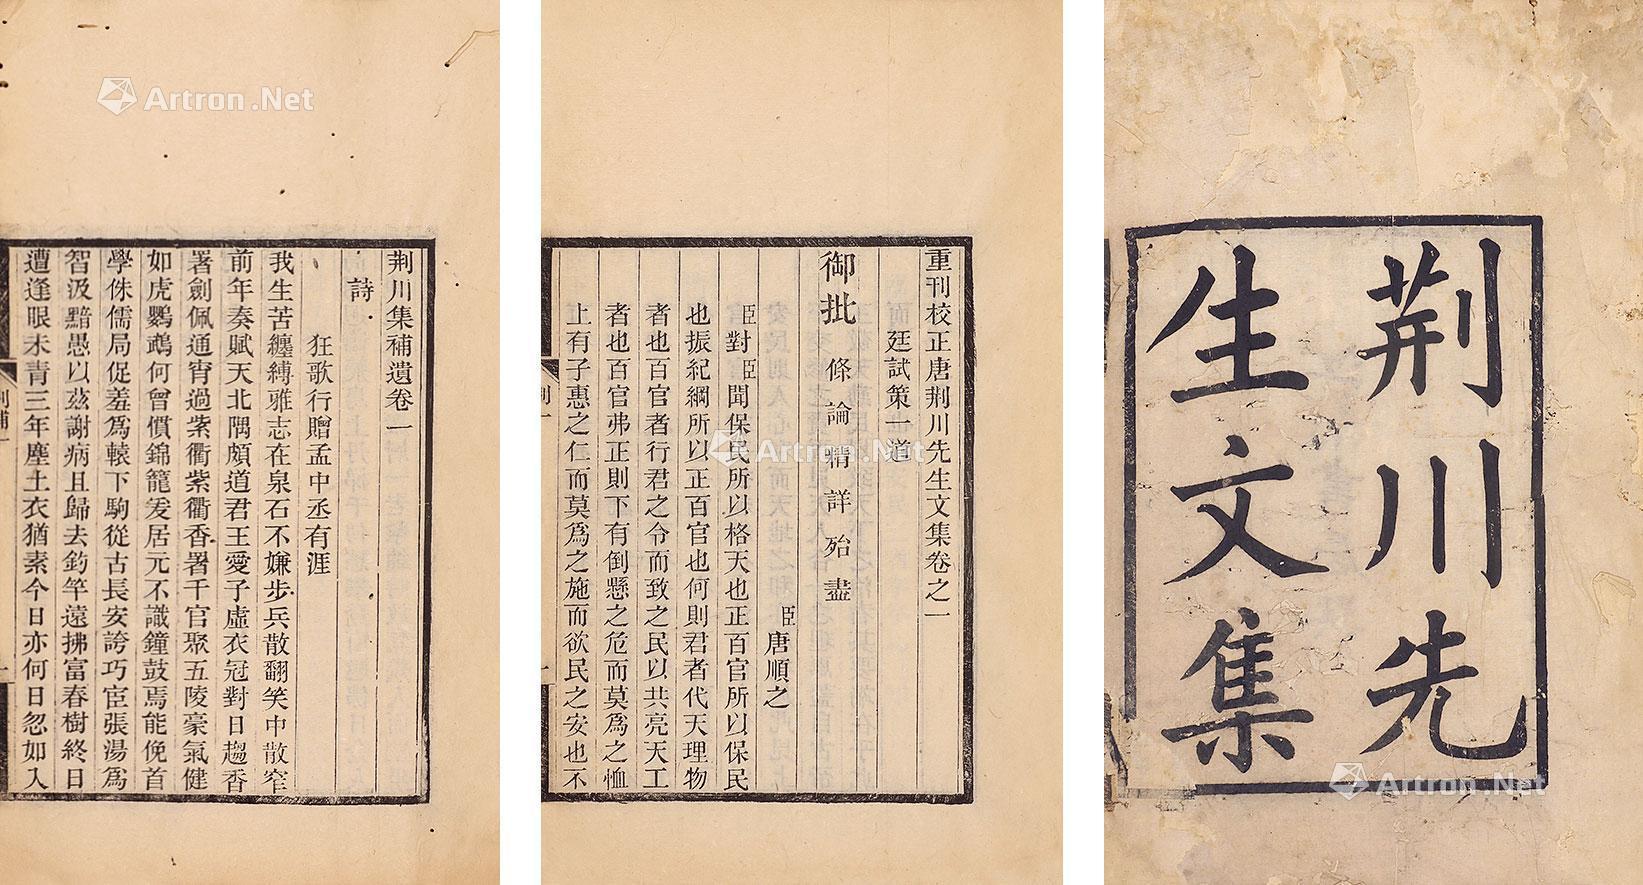 荆川先
生文集
重刊校正唐荆川先生文集卷之一
廷試策一道
御批 條論精詳殆盡
臣唐順之
臣對臣聞保民所以格天也正百官所以保民
也振紀綱所以正百官也何則君者代天理物
者也百官者行君之令而致之民以共亮天工
者也百官弗正則下有倒懸之危而莫為之恤
上有子惠之仁而莫為之施而欲民之安也不
荆川集補遺卷一
詩
狂歌行贈孟中丞有涯
我生苦纏縛雅志在泉石不嫌步兵散翻笑中散窄
前年奏賦天北隅頗道君王愛子虛衣冠對日趨香
署劍佩通宵過紫衢紫衢香署千官聚五陵豪氣健
如虎鸚鵡何曾慣錦籠爰居元不識鐘鼓焉能俛首
學侏儒局促羞為轅下駒從古長安誇巧宦張湯為
智汲黯愚以茲謝病且歸去釣竿遠拂富春樹終日
遭逢眼未青三年塵土衣猶素今日亦何日忽如入
荆一
Artron.Net
Artron.Net
Artron.Net